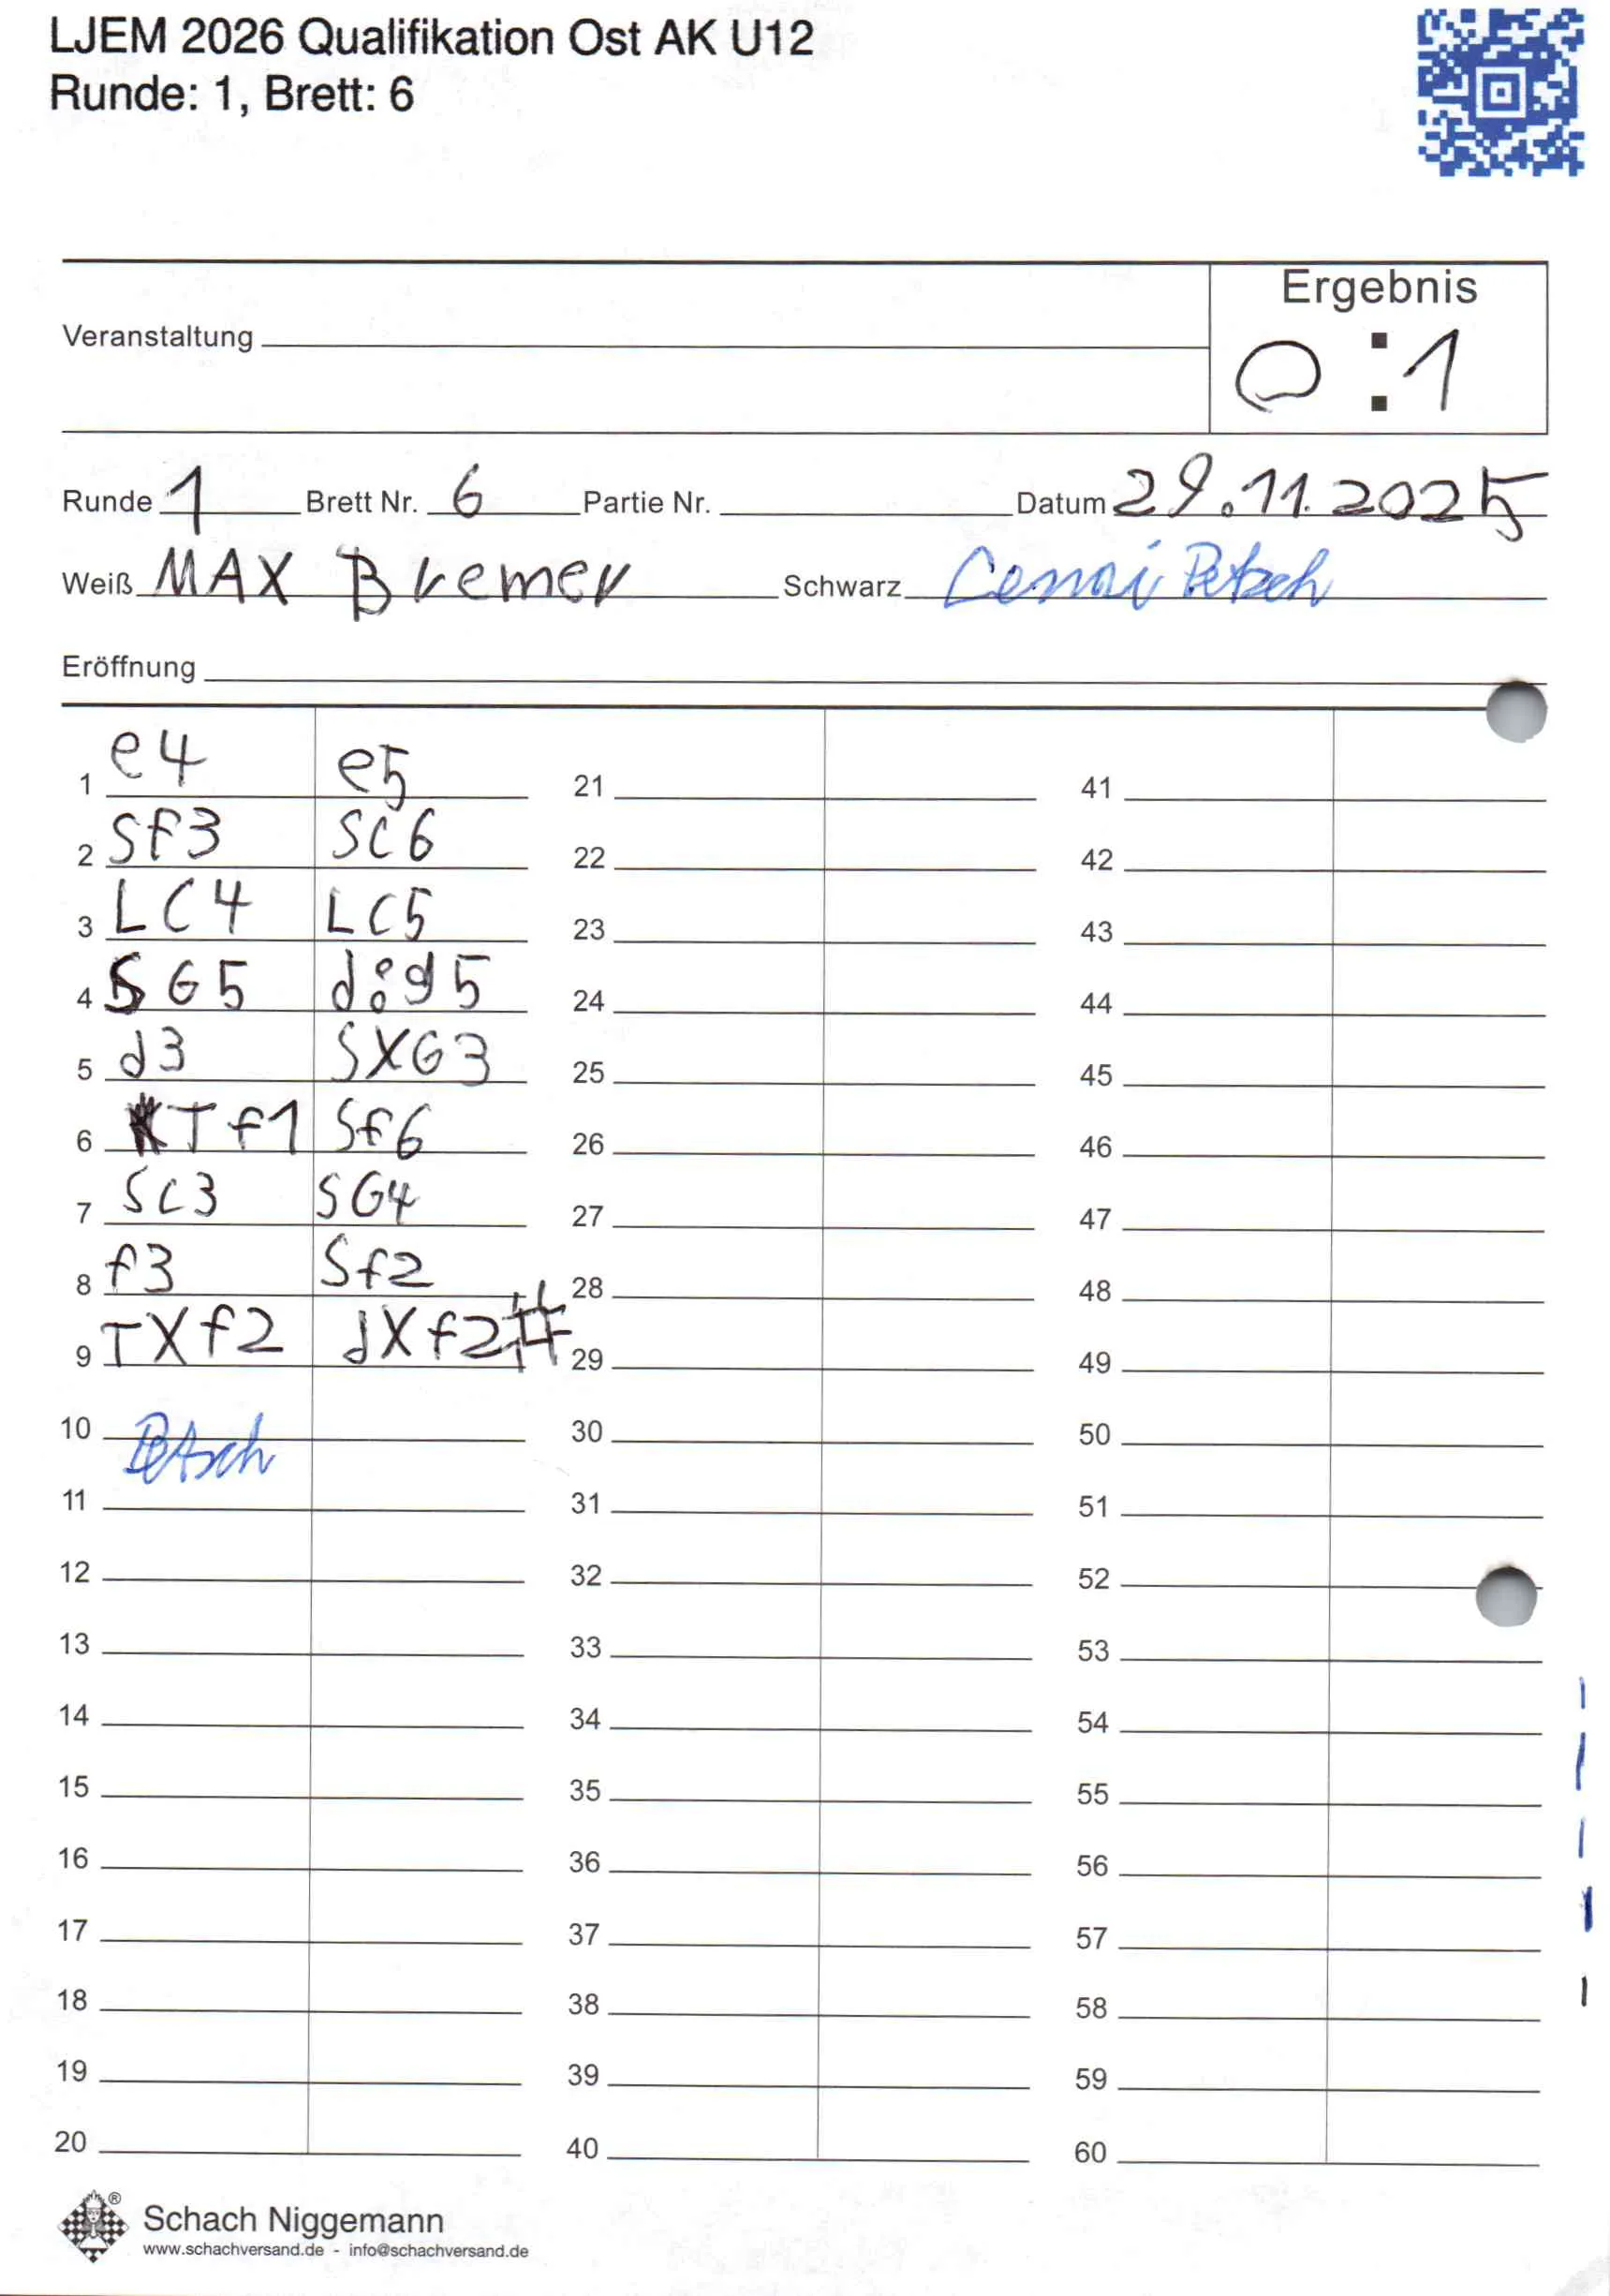 LJEM 2026 Qualifikation Ost AK U12
Runde: 1, Brett: 6
Ergebnis
Veranstaltung
0 : 1
Runde 1 Brett Nr. 6 Partie Nr. Datum 29.11.2025
Weiß MAX Bremer Schwarz Petzsch
Eröffnung
1 e4 e5
2 Sf3 Sc6
3 LC4 LC5
4 SG5 d:g5
5 d3 SXG3
6 Tf1 Sf6
7 Sc3 SG4
8 f3 Sf2
9 TXf2 dXf2#
10
11
12
13
14
15
16
17
18
19
20
21
22
23
24
25
26
27
28
29
30
31
32
33
34
35
36
37
38
39
40
41
42
43
44
45
46
47
48
49
50
51
52
53
54
55
56
57
58
59
60
® Schach Niggemann
www.schachversand.de - info@schachversand.de